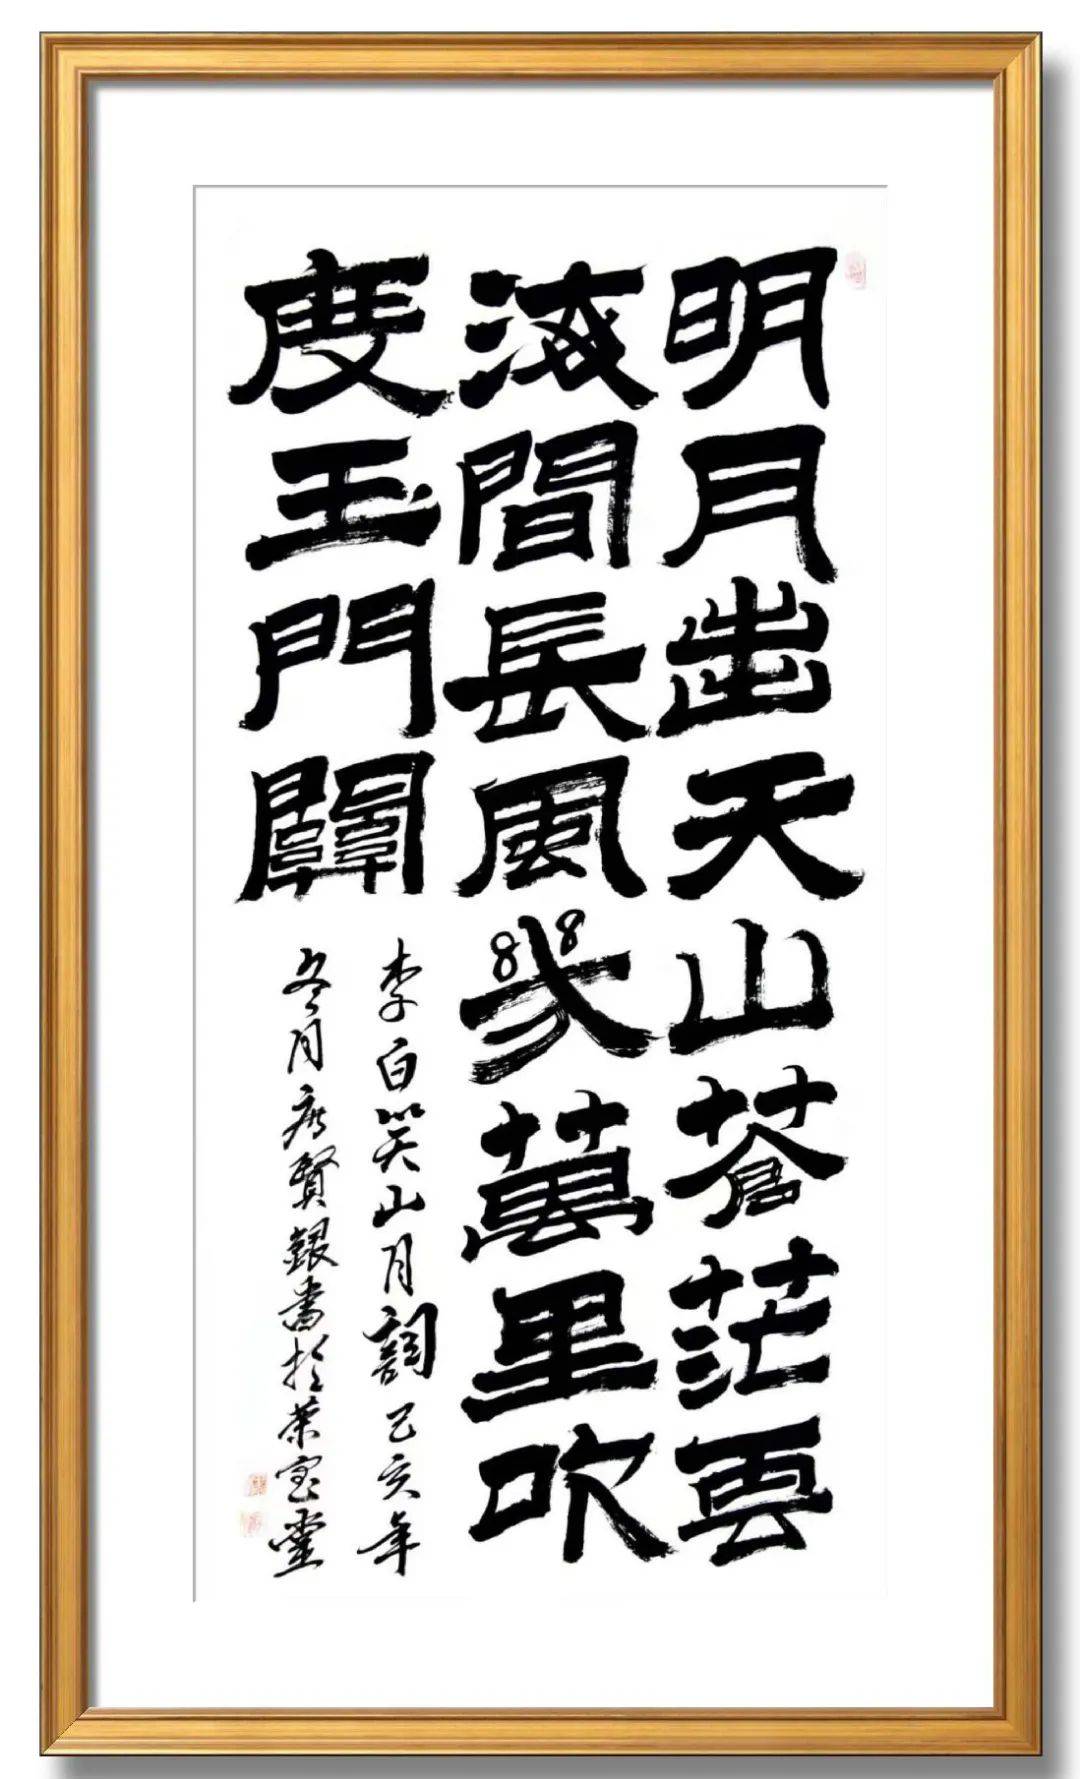 明月出天山蒼茫雲
海間長風幾萬里吹
度玉門關
李白关山月詞己亥年
冬月賢銀書於荣宝堂